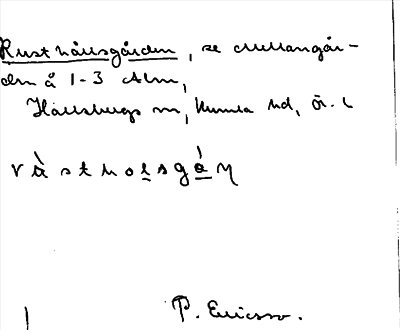 Rusthållsgården, se Mellangår-
den å 1-3 Alm,
Hallsbergs sn, Kumla hd, Ör. l
r ù s t h o l s g å ŋ
P. Ericson.